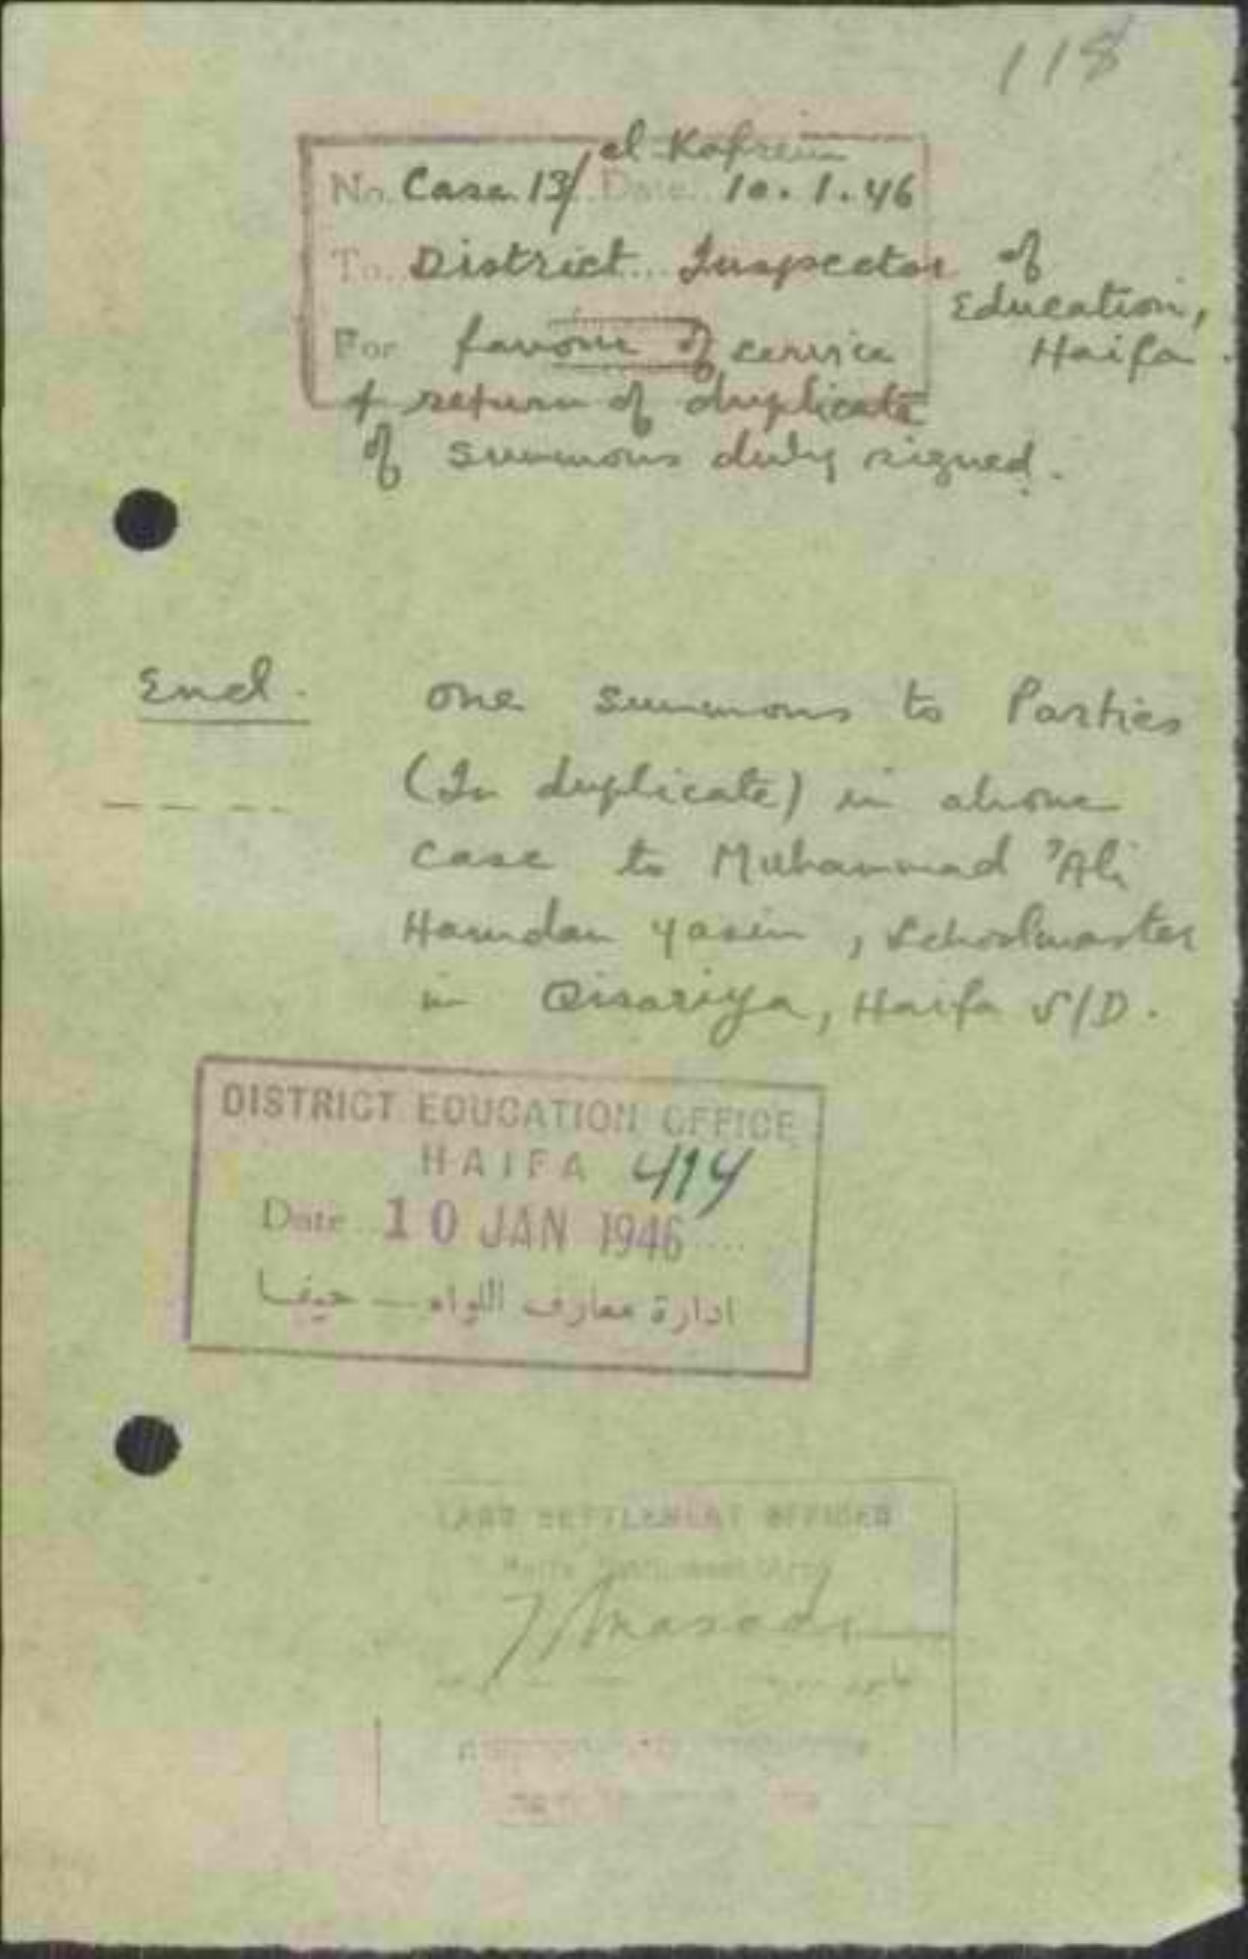 118
el-Kafrein
No. Case 13/ Date 10.1.46
To District Inspector of
Education,
Haifa.
For favour of service
& return of duplicate
of summons duly signed.
Encl. one summons to Parties
(In duplicate) in above
case to Muhammad 'Ali
Hamdan Yasin, Schoolmaster
in Qisariya, Haifa S/D.
DISTRICT EDUCATION OFFICE
HAIFA 414
Date 10 JAN 1946
ادارة معارف اللواء – حيفا
LAND SETTLEMENT OFFICER
Haifa Settlement Area